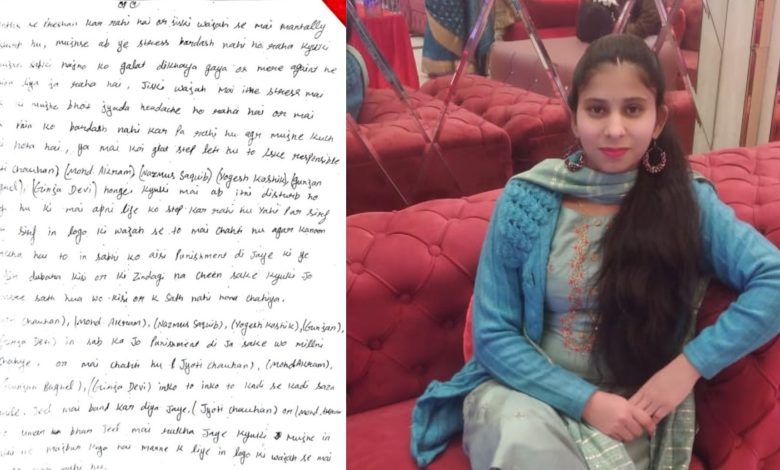 se Pareshan kar rahi hai or iski wajah se mai mentally
hu, mujhse ab ye stress bardash nahi ho raha kyuki
sabki najro ko galat dikhaya gaya or mere against ne
liya ja raha hai, Jiski wajah mai itne stress mai
mujhe bhot jyada headache ho raha hai or mai
ko bardash nahi kar Pa rahi hu agr mujhe kuch
hota hai, ya mai koi glat step leti hu to iske responsible
Chauhan) (Mohd. Akram) (Nazmus Saquib) (Yogesh Kashik), (Gunjan
(Ginja Devi) honge. kyuki mai ab itni disturb ho
hu ki mai apni life ko stop kar rahi hu yahi Par sirf
sirf in logo ki wajah se to mai chahti hu agar kanoon
hai to in sabhi ko aisi Punishment di Jaye ki ye
dubara kisi or ki Zindagi na cheen sake kyuki Jo
sath hua wo kisi or k Sath nahi hona chahiya.
Chauhan), (Mohd. Akram), (Nazmus Saquib), (Yogesh Kashik), (Gunjan),
Devi) in sab ka Jo Punishment di Ja sake wo millni
chahiye, or mai chahti hu (Jyoti Chauhan), (Mohd Akram),
Gunjan Baghel), (Ginja Devi) inko to inko to kadi se kadi saza
Jeel mai band kar diya Jaye. (Jyoti Chauhan) or (Mohd. Akram
bhar Jeel mai rakha Jaye kyuki mujhe in
ne majbur kiya hai marne k liye in logo ki wajah se mai
rahi hu.